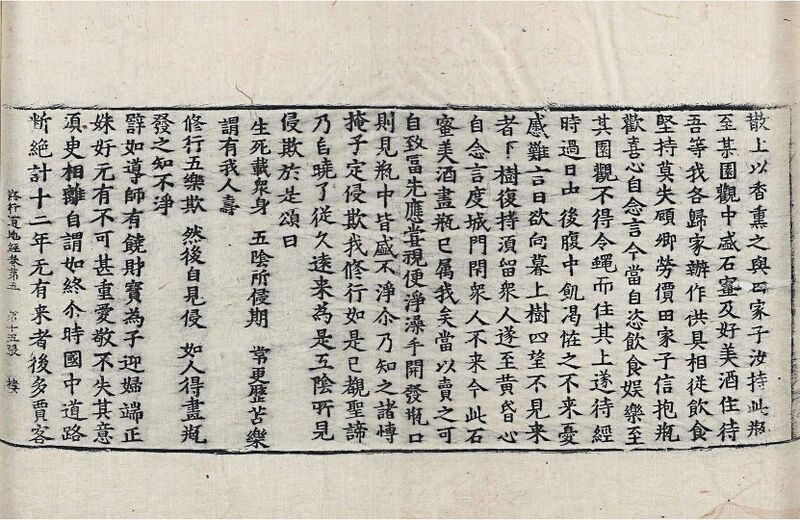 散上以香熏之與田家子汝持此瓶
至某園觀中盛石蜜及好美酒住待
吾等我各歸家辦作供具相從飲食
堅持莫失顧卿勞價田家子信抱瓶
歡喜心自念言今當自恣飲食娛樂至
其園觀不得令蠅而住其上遂待經
時過日中後腹中飢渴恠之不來憂
慼難言日欲向暮上樹四望不見來
者下樹復持須留衆人遂至黄昏心
自念言度城門閇衆人不來今此石
蜜美酒畫瓶已属我矣當以賣之可
自致富先應甞視便淨澡手開發瓶口
則見瓶中皆盛不淨尒乃知之諸愽
掩子定侵欺我修行如是已覩聖諦
乃自曉了從久遠来為是五陰所見
侵欺於是頌曰
生死載衆身 五陰所侵期 常更歷苦樂
謂有我人壽
修行五樂欺 然後自見侵 如人得畫瓶
發之知不淨
譬如導師有饒財寶為子迎婦端正
姝好元有不可甚重愛敬不失其意
須臾相離自謂如終尒時國中道路
断絶計十二年无有来者後多賈客
修行道地經卷第五 第十五張 樓